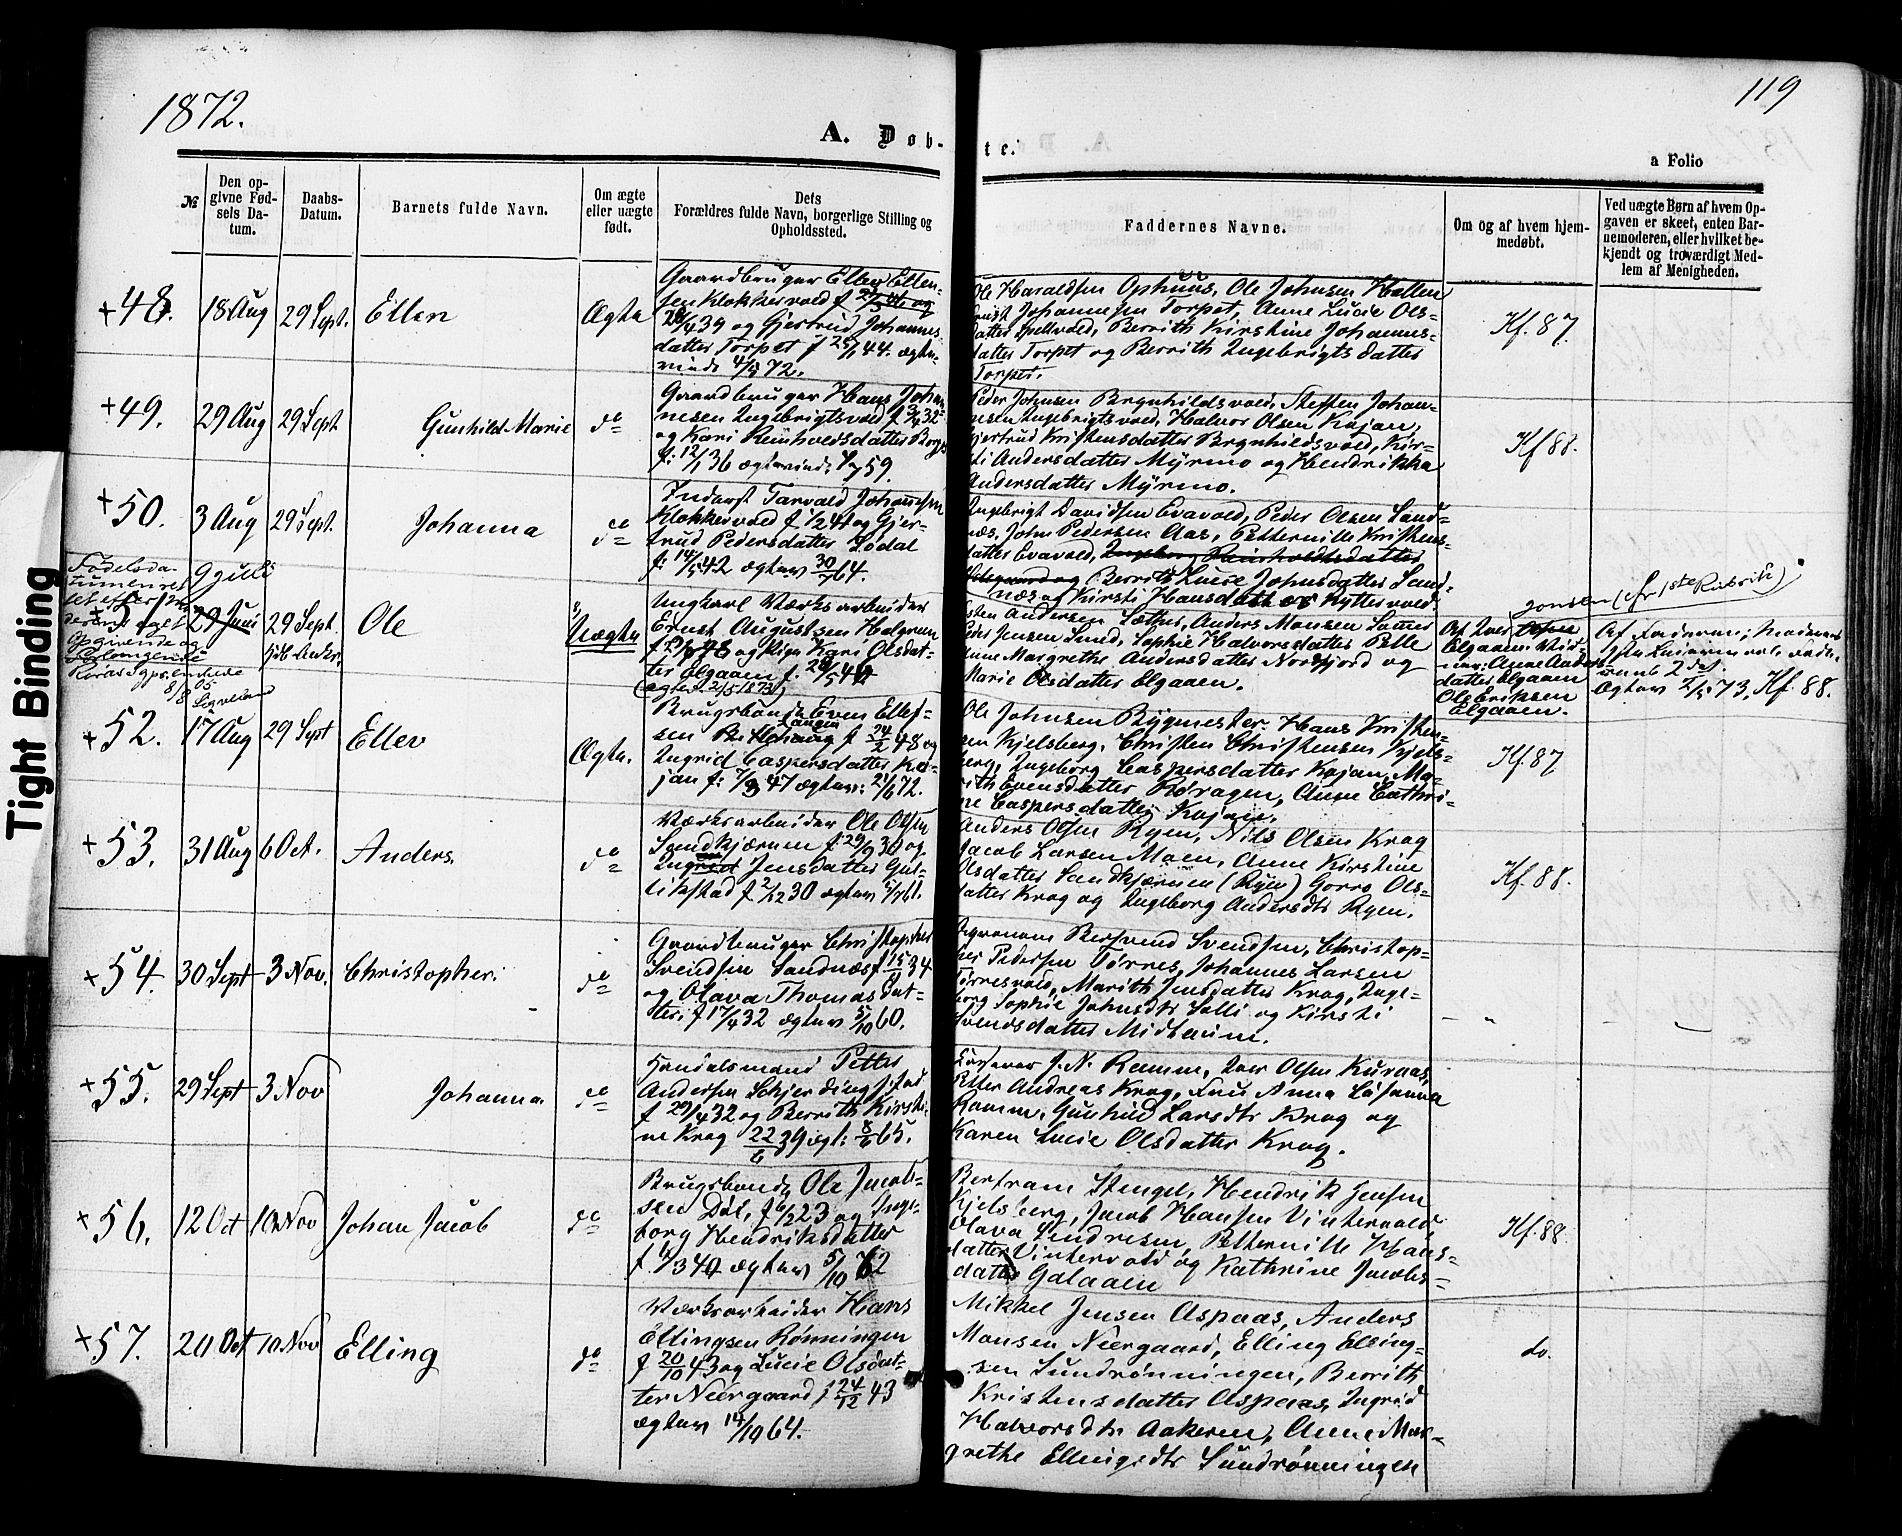 1872.
119
A. Døb-
te.
a Folio
№
Den op-
givne Fød-
sels Da-
tum.
Daabs-
Datum.
Barnets fulde Navn.
Om ægte
eller uægte
født.
Dets
Forældres fulde Navn, borgerlige Stilling og
Opholdssted.
Faddernes Navne.
Om og af hvem hjem-
medøbt.
Ved uægte Børn af hvem Op-
gaven er skeet, enten Bar-
nemoderen, eller hvilket be-
kjendt og troværdigt Med-
lem af Menigheden.
+48.
18 Aug
29 Sept.
Ellen
Ægte
Gaardbruger Ellev Ellev-
sen Klokkervold f
39 og Gjertrud Johannes-
datter Torpet f 44. ægte-
viede 72.
Ole Haraldsen Ophuus, Ole Johnsen Hallen
Johannesen Torpet, Anne Lucie Ols-
datter Berrith Kirstine Johannes-
datter Torpet og Berrith Ingebrigtsdatter
Torpet.
Kf. 87.
+49.
29 Aug
29 Sept
Gunhild Marie
do
Gaardbruger Hans Johan-
nesen Ingebrigtsvold f 32
og Kari Reinholdsdatter Borgos
f. 12/1 36 ægteviede 59.
Peder Johnsen Brynhildsvold, Steffen Johan-
nesen Ingebrigtsvold, Halvor Olsen Kojan,
Gjertrud Kristensdatter Brynhildsvold, Kir-
sti Andersdatter Myrmo og Hendrikka
Andersdatter Myrmo.
Kf 88.
+50.
3 Aug
29 Sept.
Johanna
do
Inderst Tarvald Johannesen
Klokkervold f 1/2 41 og Gjer-
trud Pedersdatter Lødal
f. 14/5 42 ægtev 30/ 64.
Ingebrigt Davidsen Evavold, Peder Olsen Sand-
næs, John Pedersen Aas, Petternille Kristens-
datter Evavold, Ingeborg Reinholdtsdatter
og Berrith Lucie Johnsdatter Sand-
næs og Kirsti Hansdatter Hyttevold.
Fødselsda-
tumen ret-
tet efter Mo-
derens eget
Opgivende og
Forlangende
Røros Sgpr.embede
8/8 05
9 Juli
29 Juni
29 Sept.
Ole
Uægte
Ungkarl Værksarbeider
Ernst Augustsen Holgren
f 48 og Pigen Kari Olsdat-
ter Elgaaen f. 28/5 46
(Ægtev. 2/5 1873)
Andersen Sæther, Anders Monsen
Peder Jensen Smed, Sophie Halvorsdatter Pelle
Anne Margrethe Andersdatter Nordfjord og
Marie Olsdatter Elgaaen.
Jonsen (cfr 1ste Rubrik)
Af Iver Olsen
Elgaaen Vid-
ner: Anne Anders-
datter Elgaaen
Ole Eriksen
Elgaaen.
Af Faderen; Moderens
2det
Ægtev 2/5 73. Kf. 88.
+52.
17 Aug
29 Sept
Ellev
Ægte.
Brugsbonde Even Ellef-
sen f 24/2 48 og
Ingrid Caspersdatter Ko-
jan f: 7/3 47 ægtev: 2/6 72.
Ole Johnsen Bygmester. Hans Kristen-
sen Kjelsberg, Christen Christensen Kjels-
berg, Ingeborg Caspersdatter Kojan, Ma-
rith Evensdatter Koragen, Anne Cathri-
ne Caspersdatter Kojan.
Kf. 87
+53.
31 Aug
6 Oct.
Anders.
do
Værksarbeider Ole Olsen
Sandkjærnen f. 29/9 30 og
Jensdatter Gul-
likstad f 2/12 30 ægtev 61.
Anders Olsen Ryen, Nils Olsen Krog
Jacob Larsen Moen, Anne Kirstine
Olsdatter Sandkjærnen (Ryen) Gorro Ols-
datter Krog og Ingeborg Andersdtr Ryen.
Kf. 88.
+54.
30 Sept
3 Nov.
Christopher.
do
Gaardbruger Christopher
Svendsen Sandnæs f 15/ 34
og Olava Thomasdat-
ter: f 17/4 32 ægtev 5/10 60.
Svendsen, Christop-
her Pedersen Tørres, Johannes Larsen
Tørresvold, Marith Jensdatter Krog, Inge-
borg Sophie Johnsdtr Solli og Kirsti
Svendsdatter Midthuun.
+55.
29 Sept
3 Nov
Johanna.
do
Handelsmand Petter
Andersen Schjerdingstad
f 29/4 32 og Berrith Kirsti-
ne Krog 22/6 39 ægt: 8/6 65.
J. N. Ramm, Iver Olsen Kuraas,
Petter Andreas Krog, Fru Anna Susanna
Ramm, Gunhild Larsdtr Krog og
Karen Lucie Olsdatter Krog.
+56.
12 Oct
10 Nov
Johan Jacob
do
Brugsbonde Ole Jacob-
sen Døl, f 23 og Inge-
borg Hendriksdatter
f. 1/3 40 ægtev 5/10 62
Bertram Stengel, Hendrik Jensen
Kjelsberg, Jacob Hansen Vintervold
Olava Endresen, Petternille Hans-
datter Vintervold og Kathrine Jacobs-
datter Galaaen
Kf. 88.
+57.
20 Oct
10 Nov
Elling
do
Værksarbeider Hans
Ellingsen Rønningen
f 20/10 43 og Lucie Olsdat-
ter Neergaard f 24/12 43
ægtev 14/10 64.
Mikkel Jensen Aspaas, Anders
Monsen Neergaard, Elling Elling-
sen Sundrønningen, Berrith
Kristensdatter Aspaas, Ingrid
Halvorsdtr Aakeren, Anne Mar-
grethe Ellingsdtr Sundrønningen
do.
Tight Binding